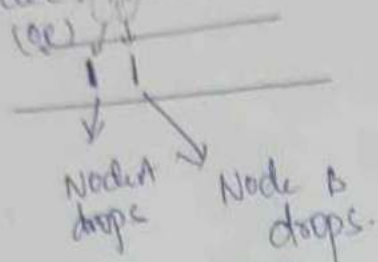 Node A
drops
Node B
drops.